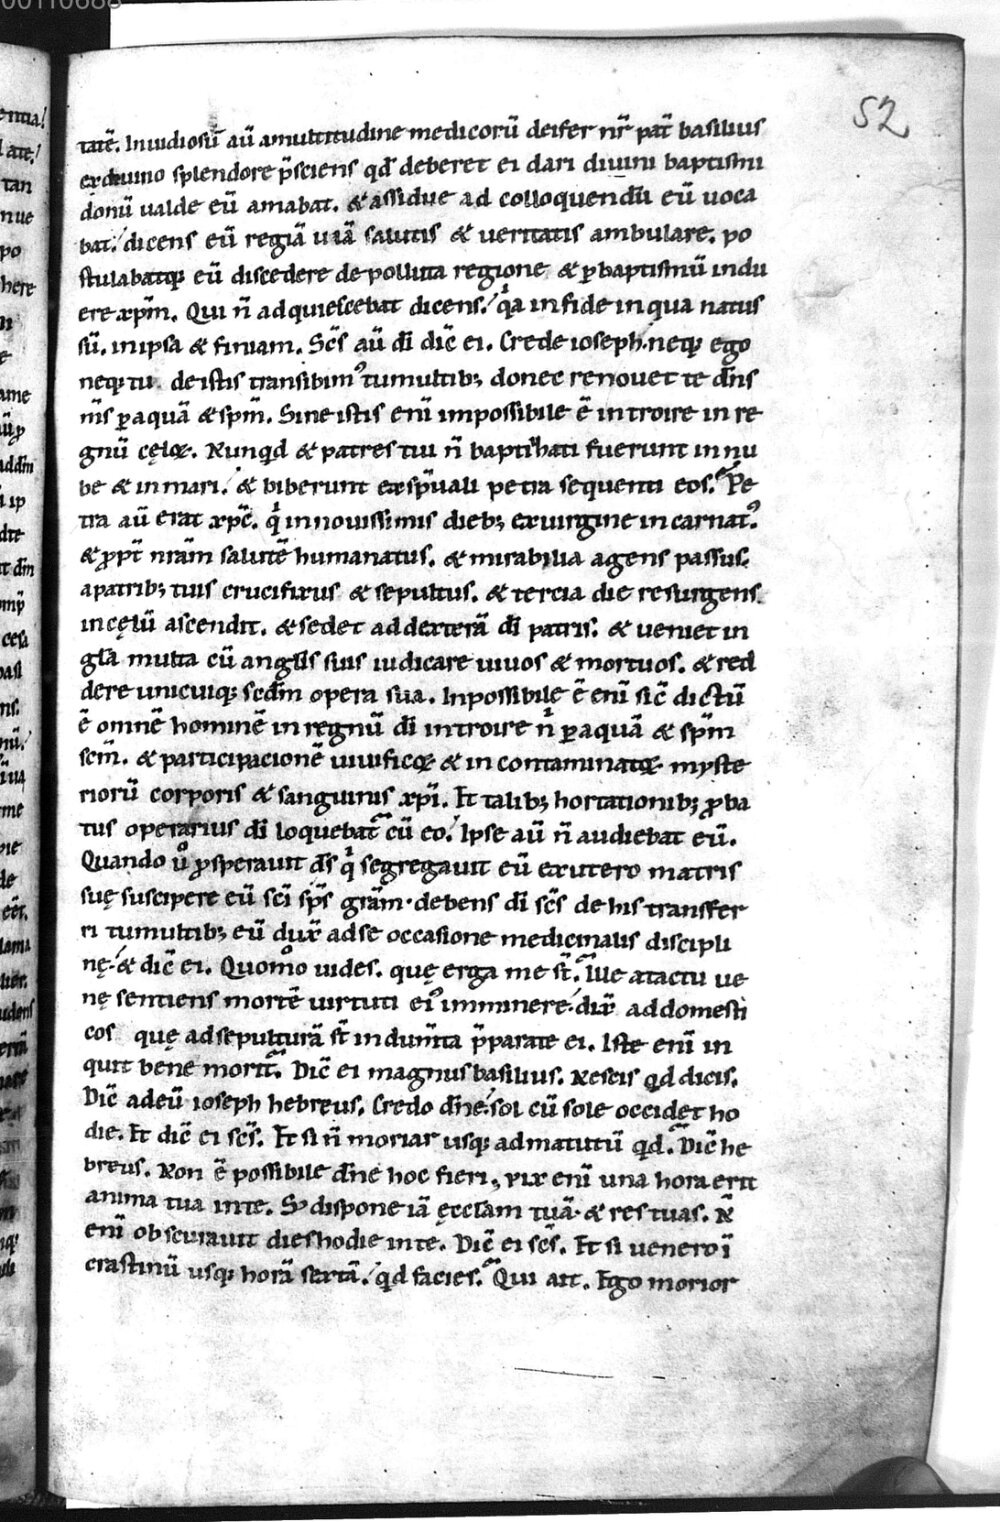 52
tatē. Inuidiosū aū amultitudine medicorū deifer nr̄ pat̄ basilius
exdiuino splendore p̄sciens qd̄ deberet ei dari diuini baptismi
donū ualde eū amabat. & assidue ad colloquendū eū uoca
bat. dicens eū regiā uiā salutis & ueritatis ambulare. po
stulabatq; eū discedere de polluta regione & p̱ baptismū indu
ere xp̄m. Qui n̄ adquiescebat dicens. qa infide inqua natus
sū. inipsa & finiam. Scs̄ aū dī dic̄ ei. Crede ioseph. neq; ego
neq; tu deistis transibimꝰ tumultib; donec renouet te dn̄s
ms̄ p̱ aquā & sp̄m. Sine istis enī impossibile ē introire in re
gnū cęloꝝ. Nunqd & patres tui n̄ baptizati fuerunt in nu
be & in mari. & biberunt ex sp̄uali petra sequenti eos. Pe
tra aū erat xp̄c. q innouissimis dieb; exuirgine incarnatꝰ.
& ꝓpt̄ nrā̄m salutē humanatus. & mirabilia agens passus.
apatrib; tuis crucifixus & sepultus. & tercia die resurgens
incęlū ascendit. & sedet ad dexterā dī patris. & ueniet in
glā multa cū anglīs suis iudicare uiuos & mortuos. & red
dere unicuiq; scdm̄ opera sua. Inpossibile ē enī sic̄ dictū
ē omnē hominē in regnū dī introire n p̱ aquā & sp̄m
scm̄. & participacionē uiuificoꝝ & in contaminatoꝝ myste
riorū corporis & sanguinis xp̄i. Et talib; hortationib; ꝓba
tus operarius dī loquebat̄ cū eo. Ipse aū n̄ audiebat eū.
Quando ů ꝓsperauit ds̄ q segregauit eū exutero matris
suę suscipere eū scī sp̄s grām. debens dī scs̄ de his transfer
ri tumultib; eū dux̄ adse occasione medicinalis discipli
nę. & dic̄ ei. Quomo uides. quę erga me st̄. Ille atactu ue
nę sentiens mortē uirtuti eiꝰ imminere. dix̄ addomesti
cos quę adsepulturā st̄ indum̄ta p̄parate ei. Iste enī in
quit bene morit̄. Dic̄ ei magnus basilius. Nescis qd dicis.
Dic̄ adeū ioseph hebreus. Credo dn̄e. sol cū sole occidet ho
die. Et dic̄ ei scs̄. Et si n̄ moriar usq; ad matutū qd. Dic̄ he
breus. Non ē possibile dn̄e hoc fieri. vix enī una hora erit
anima tua inte. S; dispone iā ęcclam̄ tuā. & res tuas. N̄
enī obscurauit dies hodie inte. Dic̄ ei scs̄. Et si uenero ī
crastinū usq; horā sextā. qd facies. Qui ait. Ego morior